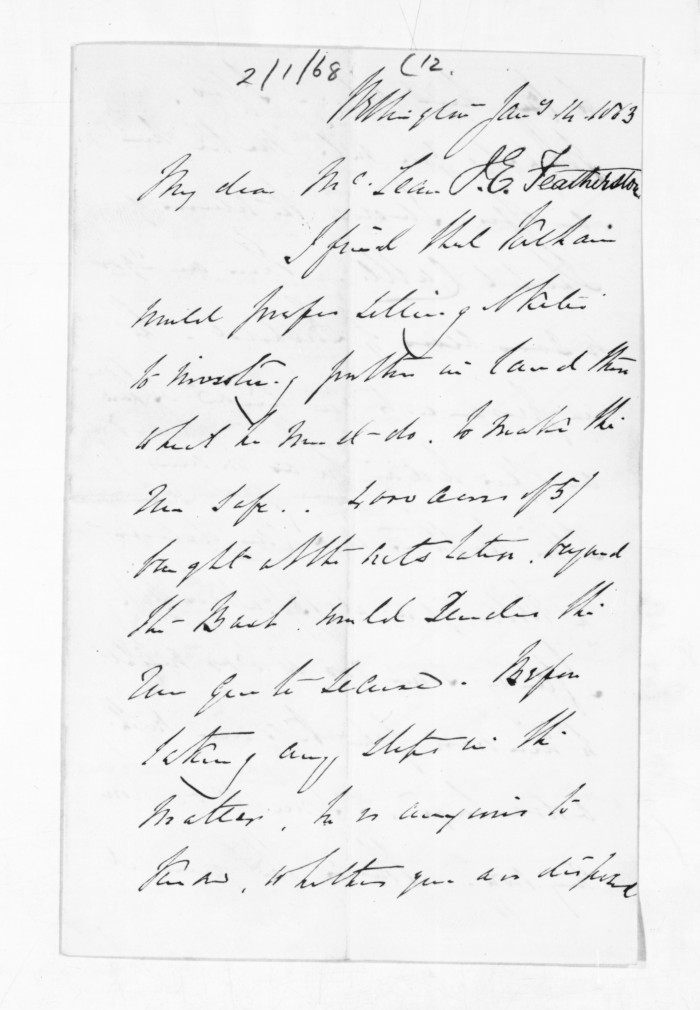 2/1/68. C12.
Wellington Jany 14. 1863
My dear McLean I.E. Featherston
I find that
would prefer selling Akitio
to investing further in land than
what he must do. to make the
run safe.. 4000 acres at 5/
bought at the outstation, beyond
the Bush would render the
run quite secure. Before
taking any steps in the
matter, he is anxious to
know, whether you are disposed